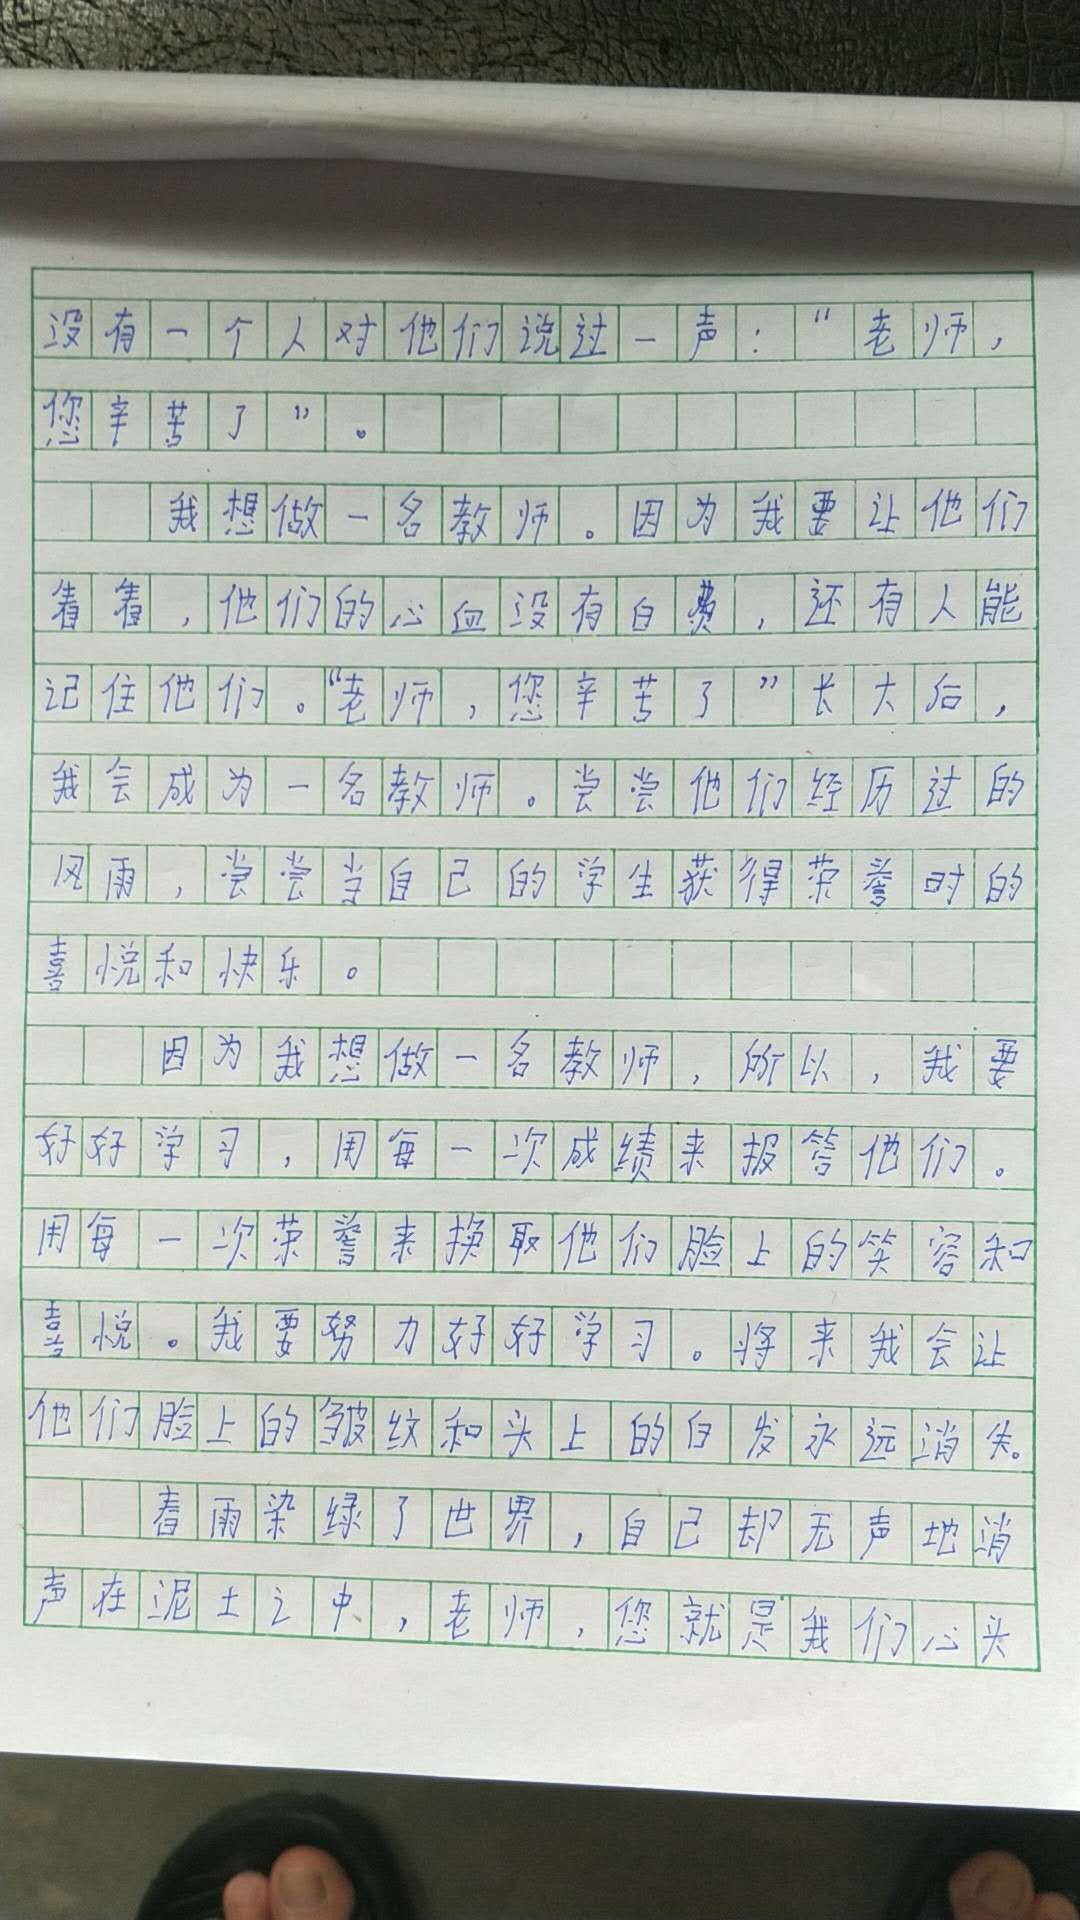 没有一个人对他们说过一声：“老师，
您辛苦了”。
我想做一名教师。因为我要让他们
看看，他们的心血没有白费，还有人能
记住他们。“老师，您辛苦了”长大后，
我会成为一名教师。尝尝他们经历过的
风雨，尝尝当自己的学生获得荣誉时的
喜悦和快乐。
因为我想做一名教师，所以，我要
好好学习，用每一次成绩来报答他们。
用每一次荣誉来换取他们脸上的笑容和
喜悦。我要努力好好学习。将来我会让
他们脸上的皱纹和头上的白发永远消失。
春雨染绿了世界，自己却无声地消
声在泥土之中，老师，您就是我们心头